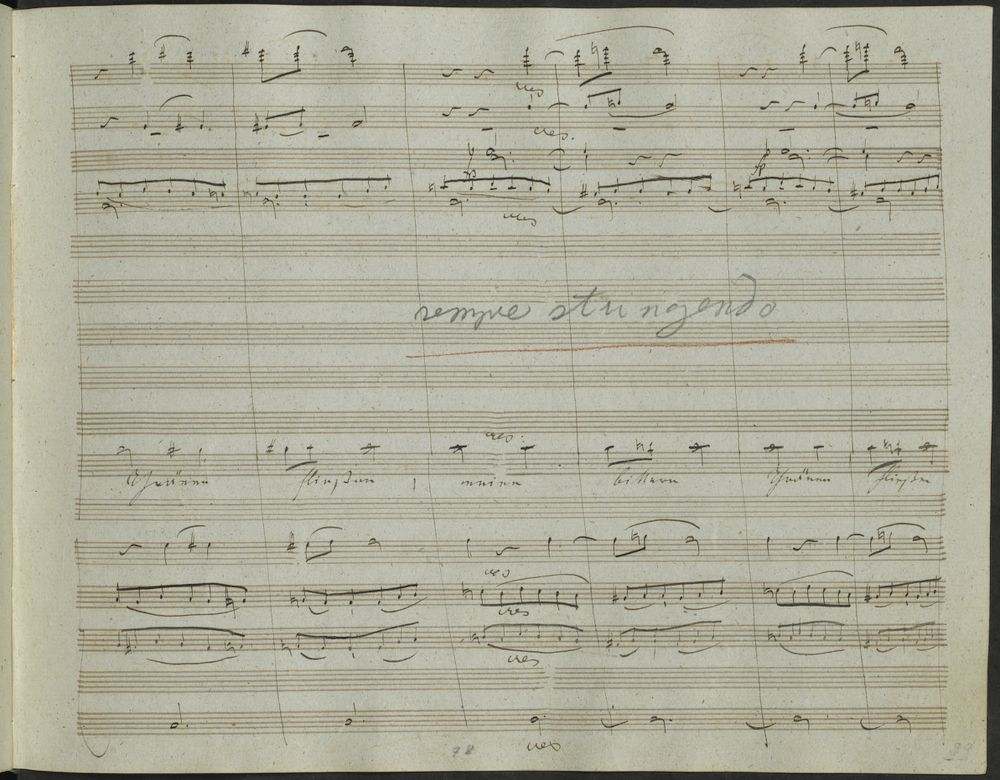 cres
cres.
fp
fp
cres
sempre stringendo
cres:
Thränen fließen, meine bittern Thränen fließen
cres
cres
cres
cres